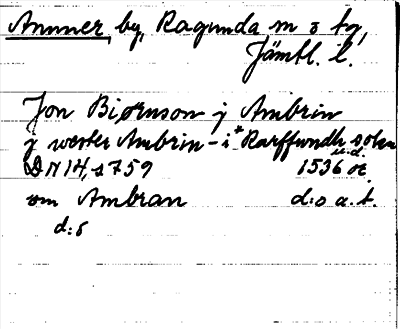 Ammer, by, Ragunda sn o tg,
Jämtl. l.
Jon Biørnson j Ambrin
j wester Ambrin - i *Rarffwndh sokn
DN 14, s 759 1536 or. u.d.
om Ambran d:o a.t.
d:o